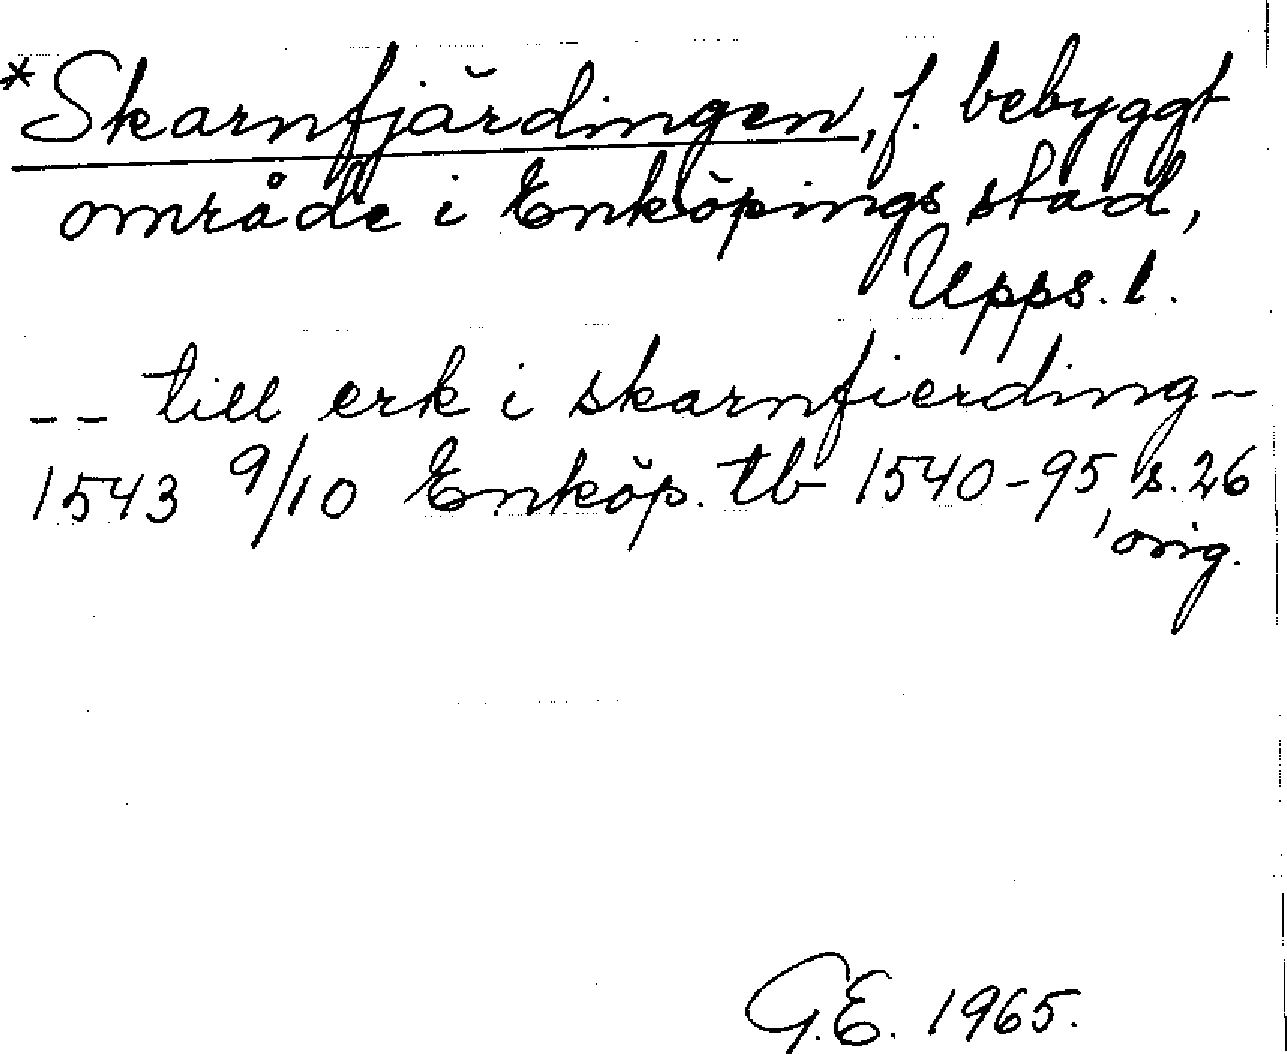 *Skarnfjärdingen, f. bebyggt
område i Enköpings stad,
Upps. l.
-- till erk i skarnfierding-
1543 9/10 Enköp. tb 1540-95, s. 26
orig.
G.E. 1965.